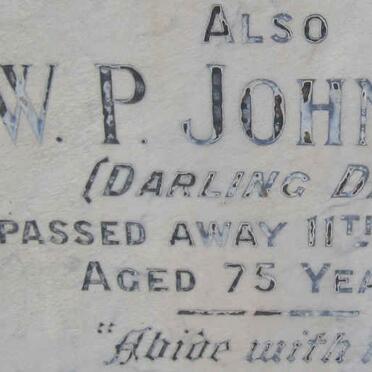 ALSO
W. P. JOHN
(DARLING D
PASSED AWAY 11TH
AGED 75 YEA
"Abide with